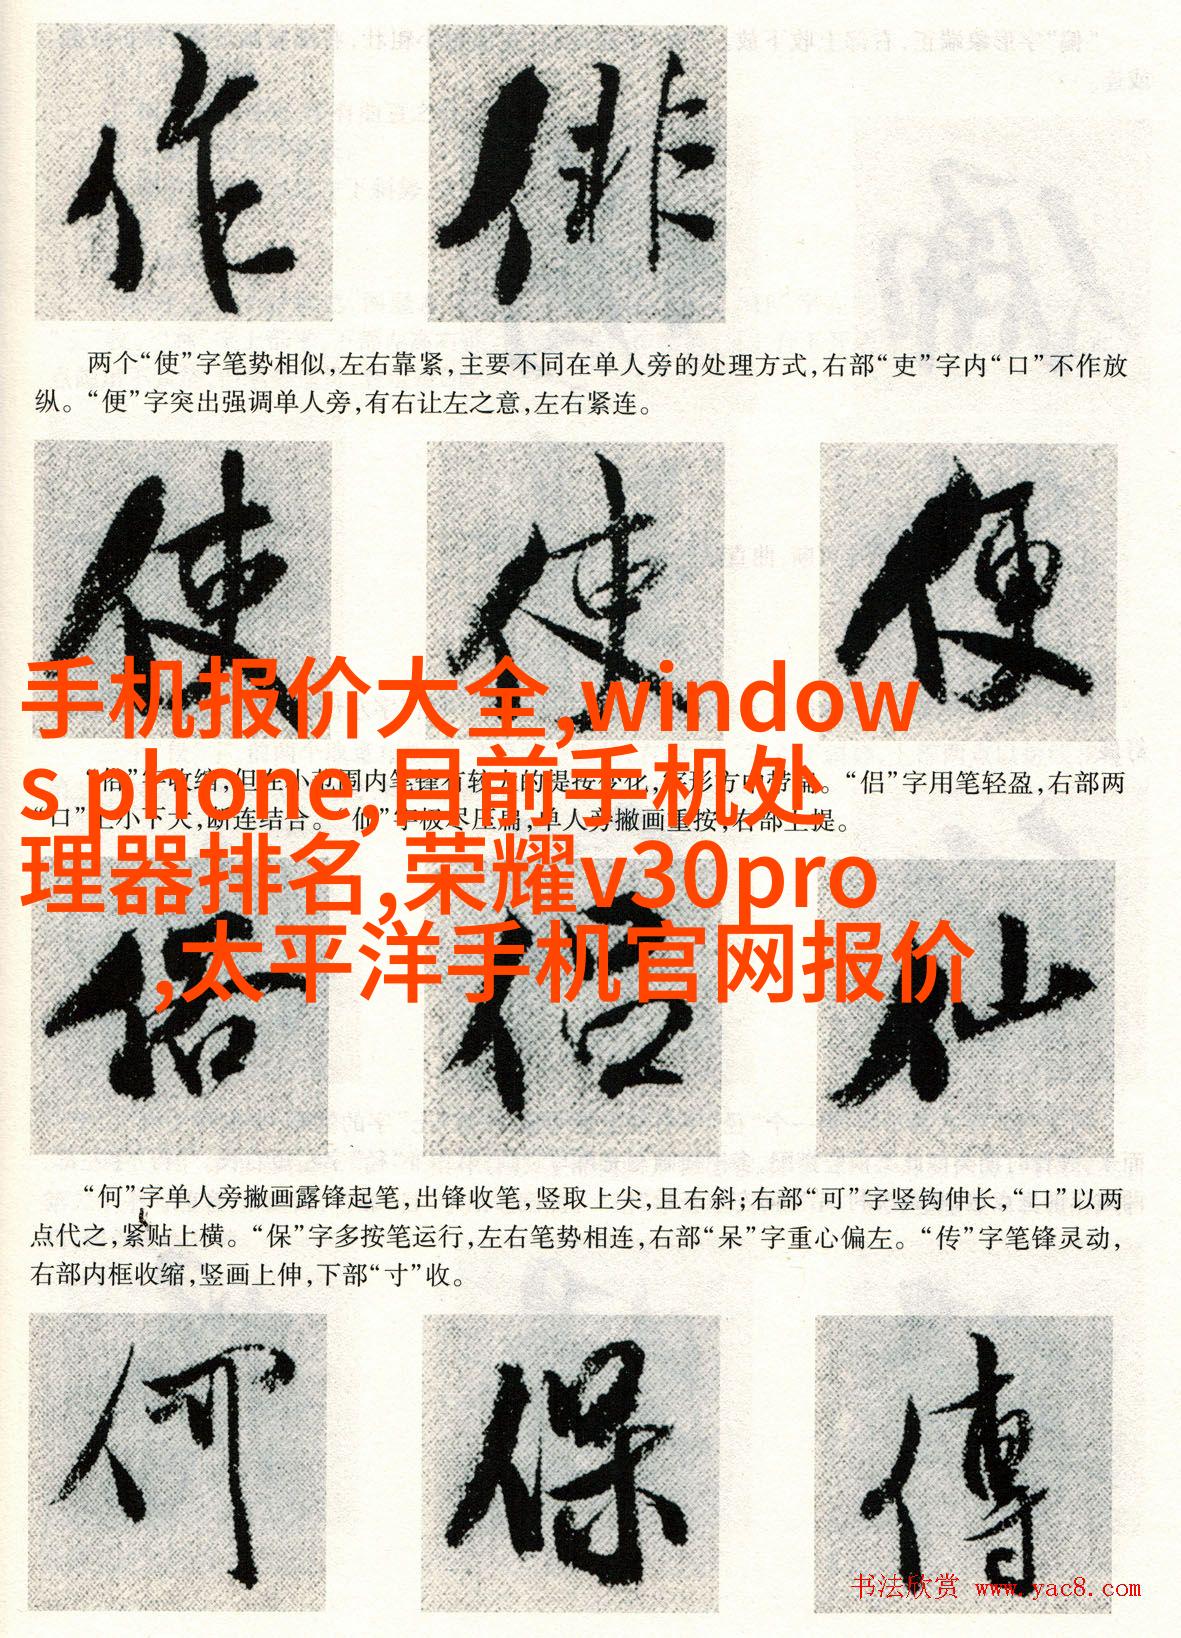 作 俳
两个“使”字笔势相似,左右靠紧,主要不同在单人旁的处理方式,右部“吏”字内“口”不作放
纵。“便”字突出强调单人旁,有右让左之意,左右紧连。
使 使 便
手机报价大全,window
s phone,目前手机处
理器排名,荣耀v30pro
,太平洋手机官网报价
字收缩,但在小范围内笔锋有较大的提按变化,字形方中带扁。“侣”字用笔轻盈,右部两
“口”上小下大,断连结合。“仙”字极尽压扁,单人旁撇画重按,右部上提。
侣 仙
“何”字单人旁撇画露锋起笔,出锋收笔,竖取上尖,且右斜;右部“可”字竖钩伸长,“口”以两
点代之,紧贴上横。“保”字多按笔运行,左右笔势相连,右部“呆”字重心偏左。“传”字笔锋灵动,
右部内框收缩,竖画上伸,下部“寸”收。
何 保 傳
书法欣赏 www.yac8.com